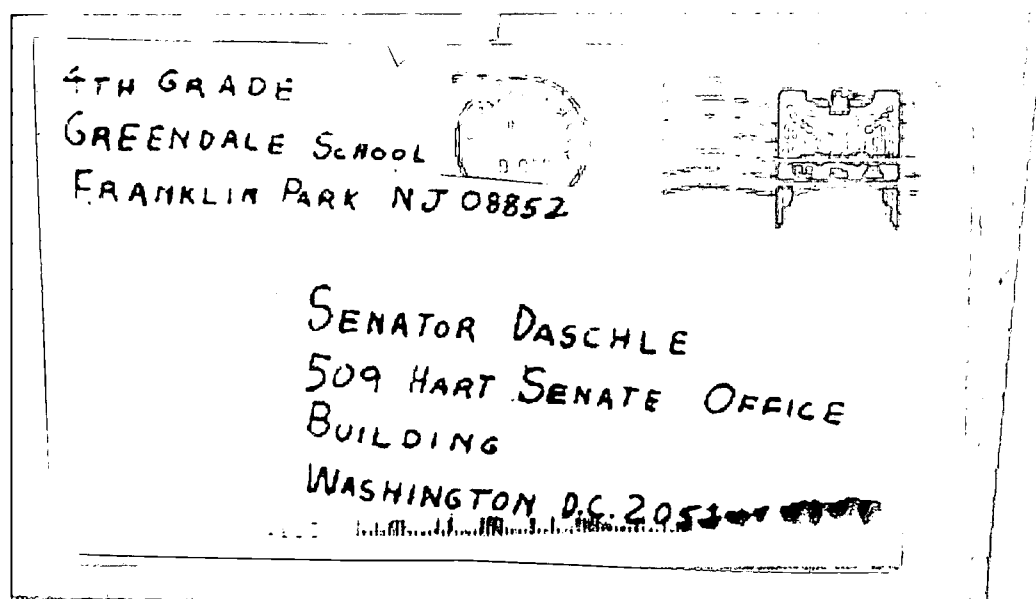 4TH GRADE
GREENDALE SCHOOL
FRANKLIN PARK NJ 08852
SENATOR DASCHLE
509 HART SENATE OFFICE
BUILDING
WASHINGTON D.C. 2051